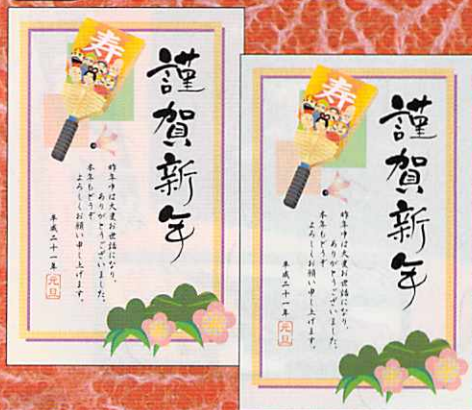 寿
謹賀新年
昨年中は大変お世話になり、
ありがとうございました。
本年もどうぞ
よろしくお願い申し上げます。
平成二十一年 元旦
寿
謹賀新年
昨年中は大変お世話になり、
ありがとうございました。
本年もどうぞ
よろしくお願い申し上げます。
平成二十一年 元旦